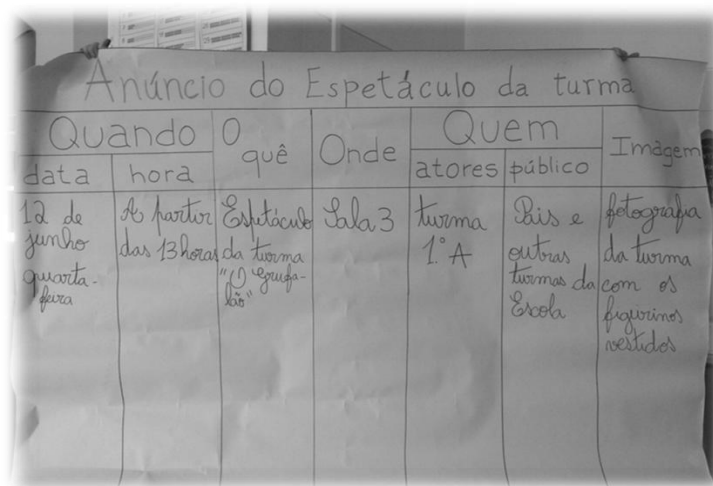 Anúncio do Espetáculo da turma
Quando
data
hora
O
quê
Onde
Quem
atores
público
Imagem
12 de
junho
quarta-
feira
A partir
das 13 horas
Espetáculo
da turma
"O Grufa-
lão"
Sala 3
turma
1.º A
Pais e
outras
turmas da
Escola
fotografia
da turma
com os
figurinos
vestidos